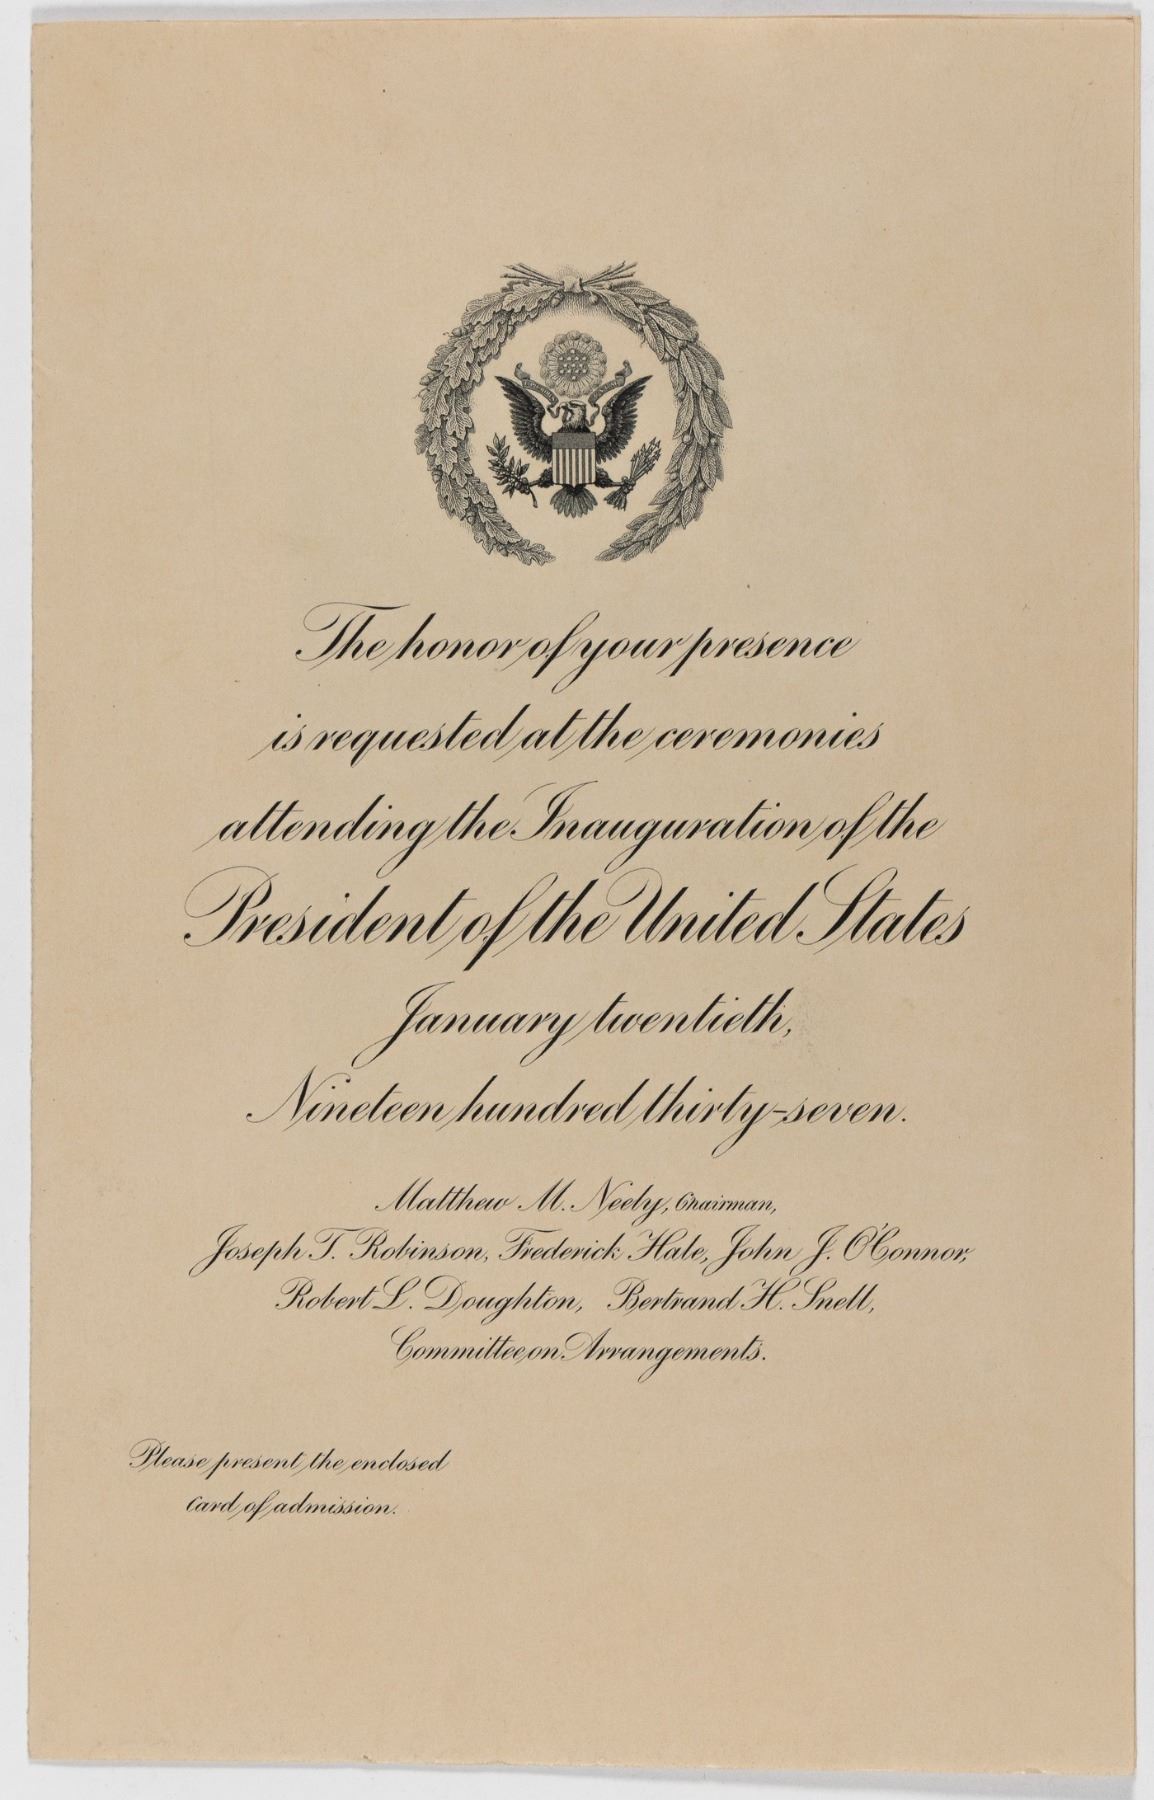 The honor of your presence
is requested at the ceremonies
attending the Inauguration of the
President of the United States
January twentieth,
Nineteen hundred thirty-seven.
Matthew M. Neely, Chairman,
Joseph T. Robinson, Frederick Hale, John J. O'Connor,
Robert L. Doughton, Bertrand H. Snell,
Committee on Arrangements.
Please present the enclosed
card of admission.